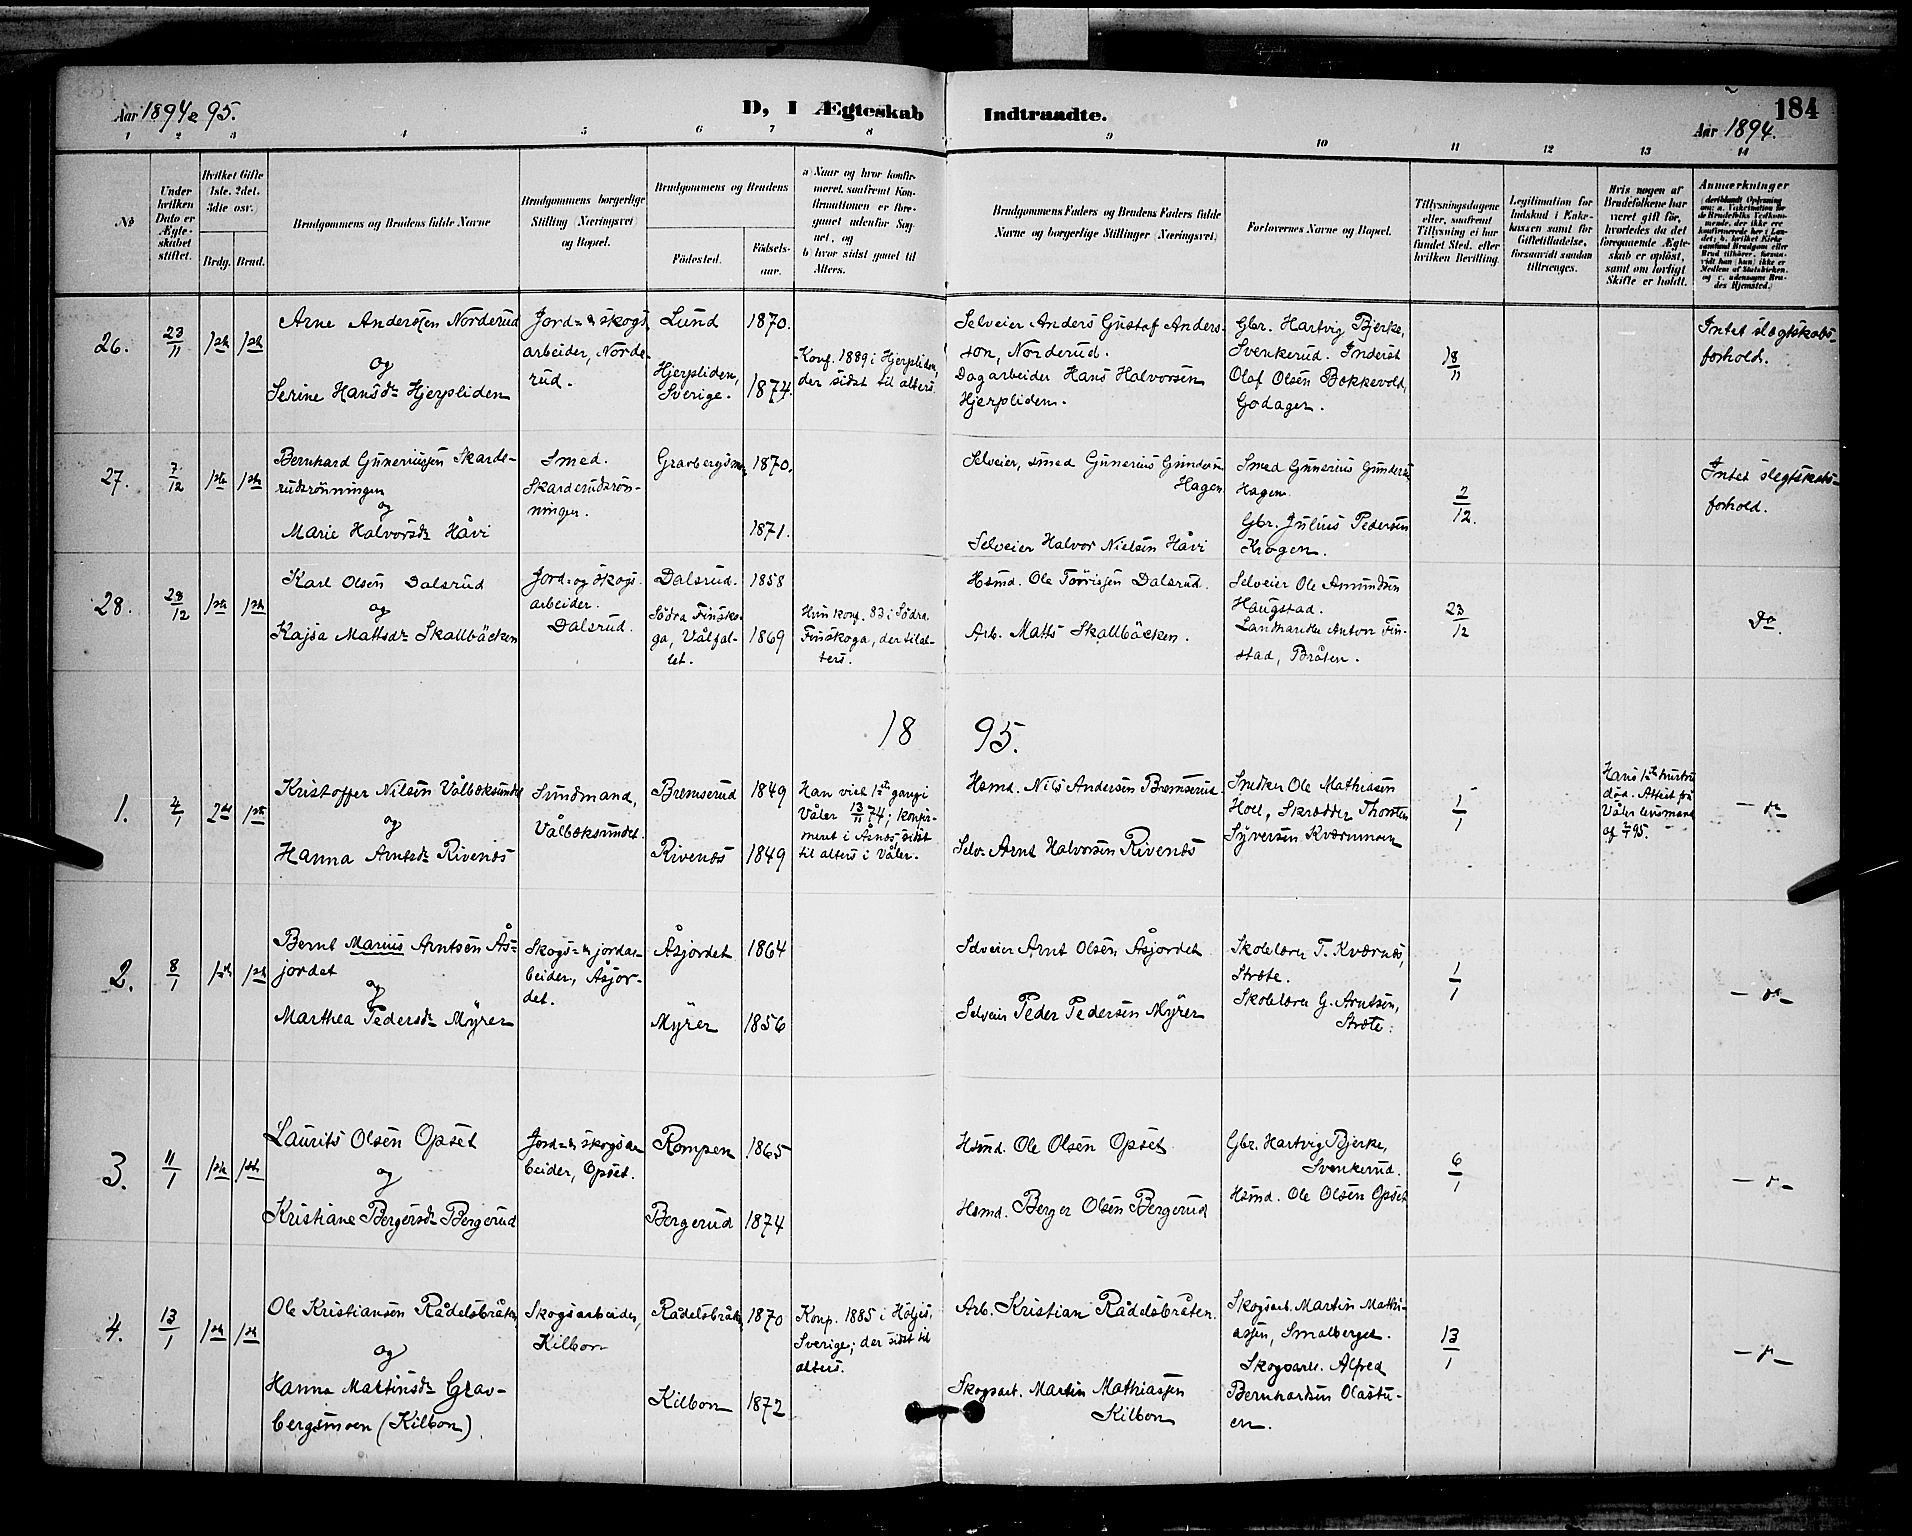 Aar 1894 & 95.
D, I Ægteskab
Indtraadte.
184
Aar 1894.
1 2 3 4 5 6 7 8 9 10 11 12 13 14
No
Under hvilken Dato er Ægteskabet stiftet.
Hvilket Gifte (1ste, 2det, 3die osv.)
Brdg. Brud.
Brudgommens og Brudens fulde Navne
Brudgommens borgerlige Stilling (Næringsvei) og Bopæl.
Brudgommens og Brudens
Fødested.
Fødselsaar.
a) Naar og hvor konfirmeret, saafremt Konfirmationen er foregaaet udenfor Sognet, og
b) hvor sidst gaaet til Alters.
Brudgommens Faders og Brudens Faders fulde Navne og borgerlige Stillinger (Næringsvei)
Forlovernes Navne og Bopæl.
Tillysningsdagene eller, saafremt Tillysning ei har fundet Sted, efter hvilken Bevilling.
Legitimation for Indskud i Enkekassen samt for Giftetilladelse, forsaavidt saadan tiltrænges.
Hvis nogen af Brudefolkene har været gift før, hvorledes da det foregaaende Ægteskab er opløst, samt om lovligt Skifte er holdt.
Anmærkninger
26.
23/11
1ste 1ste
Arne Anderssen Norderud
og
Serine Hansdr Hjerpliden
Jord- & skogs
arbeider, Norde-
rud.
Lund
Hjerpliden,
Sverige.
1870.
1874.
Konf. 1889 i Hjerpliden,
der sidst til alters.
Selveier Anders Gustaf Anders-
son, Norderud.
Dagarbeider Hans Halvorsen
Hjerpliden.
Gbr. Hartvig Bjerke,
Svenkerud. Inderst
Olaf Olsen Bokkevold,
Godager.
18/11
Intet slægtskabs-
forhold.
27.
7/12
1ste 1ste
Bernhard Guneriussen Skarde-
rudrønningen
og
Marie Halvorsdr Håvi
Smed.
Skarderudrøn-
ningen.
Gravbergsmo
1870.
1871.
Selveier, smed Gunerius Gundersen
Hagen
Selveier Halvor Nielsen Håvi
Smed Gunerius Gunders
Hagen.
Gbr. Julius Pedersen
Krogen.
2/12.
Intet slegtskabs-
forhold.
28.
28/12
1ste 1ste
Karl Olsen Dalsrud
og
Kajsa Mattsdr Skallbäcken
Jord- og skogs-
arbeider.
Dalsrud.
Dalsrud.
Södra Finsko-
ga, Vålfal-
let.
1858
1869
Hun konf. 83 i Södra
Finskoga, der til al-
ters.
Hsmd. Ole Torrissen Dalsrud.
Arb. Matts Skallbäcken.
Selveier Ole Amundsen
Haugstad.
Anton Fin-
stad, Bråten.
23/12
Do.
18 95.
1.
4/1
2det 1ste
Kristoffer Nilsen Vålbæksundet
og
Hanna Arntsdr Rivenæs
Sundmand,
Vålbæksundet.
Bremserud
Rivenæs
1849
1849
Han viet 1ste gang i
Våler 13/11 74; konfir-
meret i Åsnæs, sidst
til alters i Våler.
Hsmd. Nils Andersen Bremserud
Selv. Arnt Halvorsen Rivenæs
Snedker Ole Mathiasen
Hoel, Skrædder Thorsten
Syversen Kværnmoen
1/1
Hans 1ste hustru
død. Attest fra
Våler lensmand
af 2/1 95.
— do —
2.
8/1
1ste 1ste
Bernt Marius Arntsen Ås-
jordet
og
Marthea Pedersdr Myrer
Skogs- & jordar-
beider, Åsjor-
det.
Åsjordet
Myrer
1864
1856
Selveier Arnt Olsen Åsjordet
Selveier Peder Pedersen Myrer
Skolelærer T. Kværnæs,
Stræte.
Skolelærer G. Arntsen,
Stræte.
1/1
— do —
3.
11/1
1ste 1ste
Laurits Olsen Opset
og
Kristiane Bergersdr Bergerud
Jord- & skogsar-
beider, Opset.
Rompen
Bergerud
1865
1874
Hsmd. Ole Olsen Opset
Hsmd. Berger Olsen Bergerud
Gbr. Hartvig Bjerke,
Svenkerud.
Hsmd. Ole Olsen Opset
6/1
— do —
4.
13/1
1ste 1ste
Ole Kristiansen Rådelsbråten
og
Hanna Martinsdr Grav-
bergsmoen (Kilbon)
Skogsarbeider,
Kilbon
Rådelsbråten
Kilbon
1870
1872
Konf. 1885 i Höljes,
Sverige; der sidst til
alters.
Arb. Kristian Rådelsbråten.
Skogsarb. Martin Mathiassen
Kilbon
Skogsarb. Martin Mathi-
assen, Smalberget.
Skogsarb. Alfred
Bernhardsen Olastu-
en.
13/1
— do —